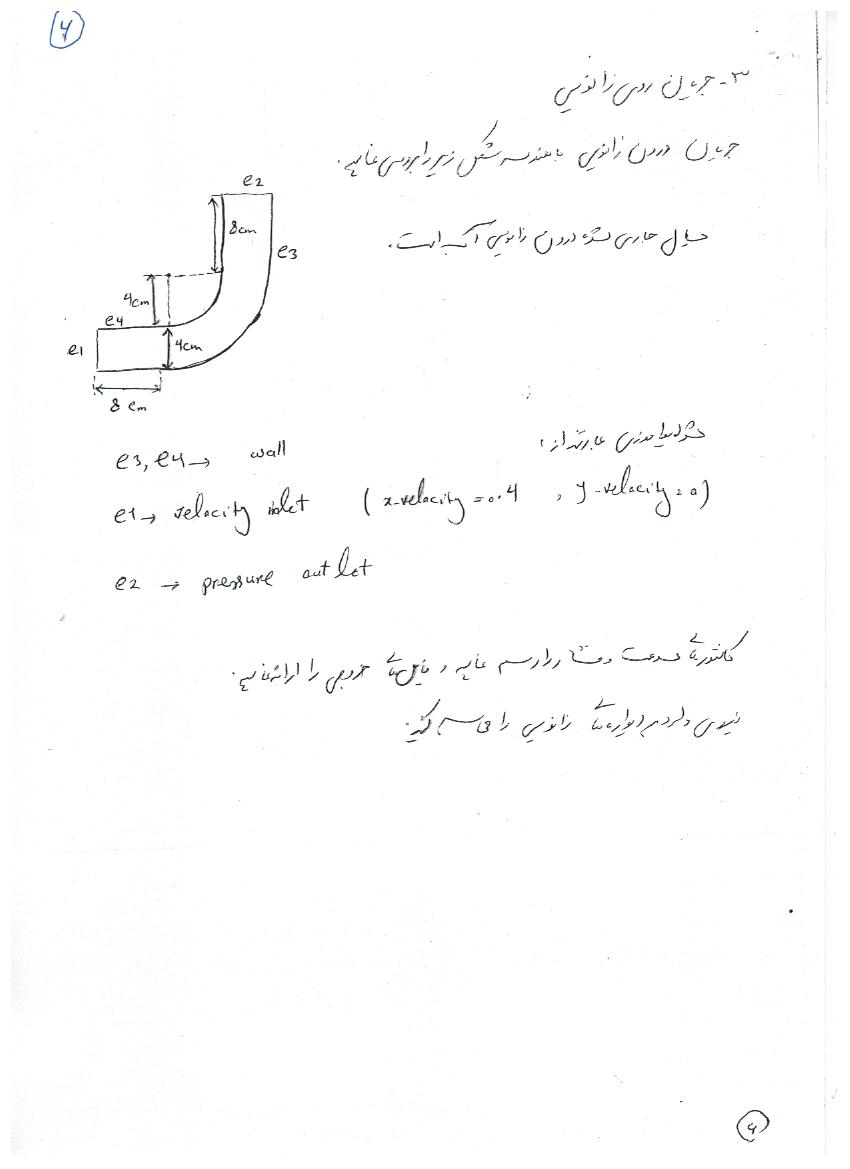 ۴
۳- جریان روی زانویی
جریان درون زانویی با هندسه شکل زیر را بررسی نمایید.
e2
8cm
e3
سیال جاری شده درون زانویی آب است.
4cm
e4
e1
4cm
8 cm
شرایط مرزی عبارتند از:
e3, e4 → wall
e1 → velocity inlet ( x-velocity = 0.4 , y-velocity = 0)
e2 → pressure outlet
کانتورهای سرعت و فشار را رسم نمایید و فایل‌های خروجی را ارائه نمایید.
نیروی وارد بر دیواره‌های زانویی را محاسبه کنید.